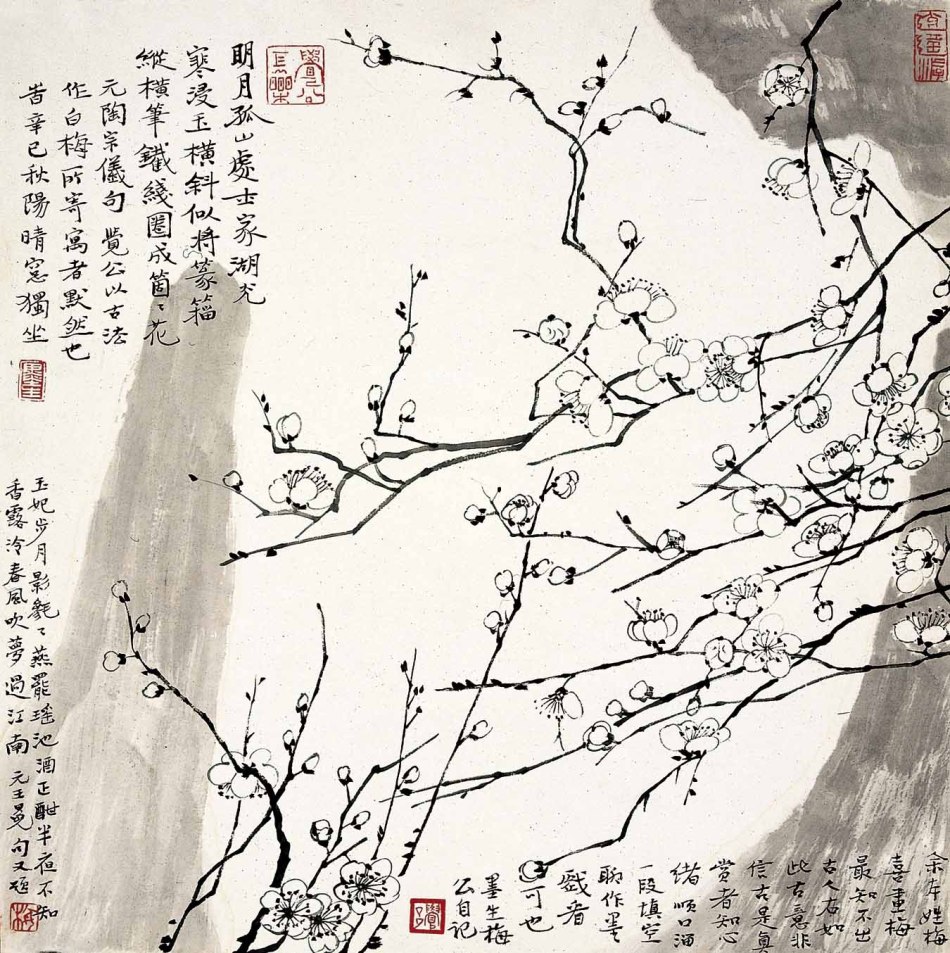 明月孤山處士家湖光
寒浸玉橫斜似將篆籀
縱橫筆鐵綫圈成箇〻花
元陶宗儀句覺公以古法
作白梅所寄寓者默然也
昔辛巳秋陽晴窓獨坐
玉妃步月影毿〻燕罷瑤池酒正酣半夜不知
香露冷春風吹夢過江南 元王冕句又題
余本姓梅
喜畫梅
最知不出
古人右如
此古意非
信古是真
賞者知心
緒順口溜
一段填空
聊作墨
戲看
可也
墨生梅
公自記